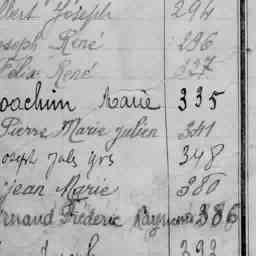 lbert Joseph 294
oseph René 296
Félix René 327
oachim Marie 335
Pierre Marie Julien 341
oseph Jules Yvs 348
jean Marie 380
ernand Fréderic Raymond 386
Joseph 393